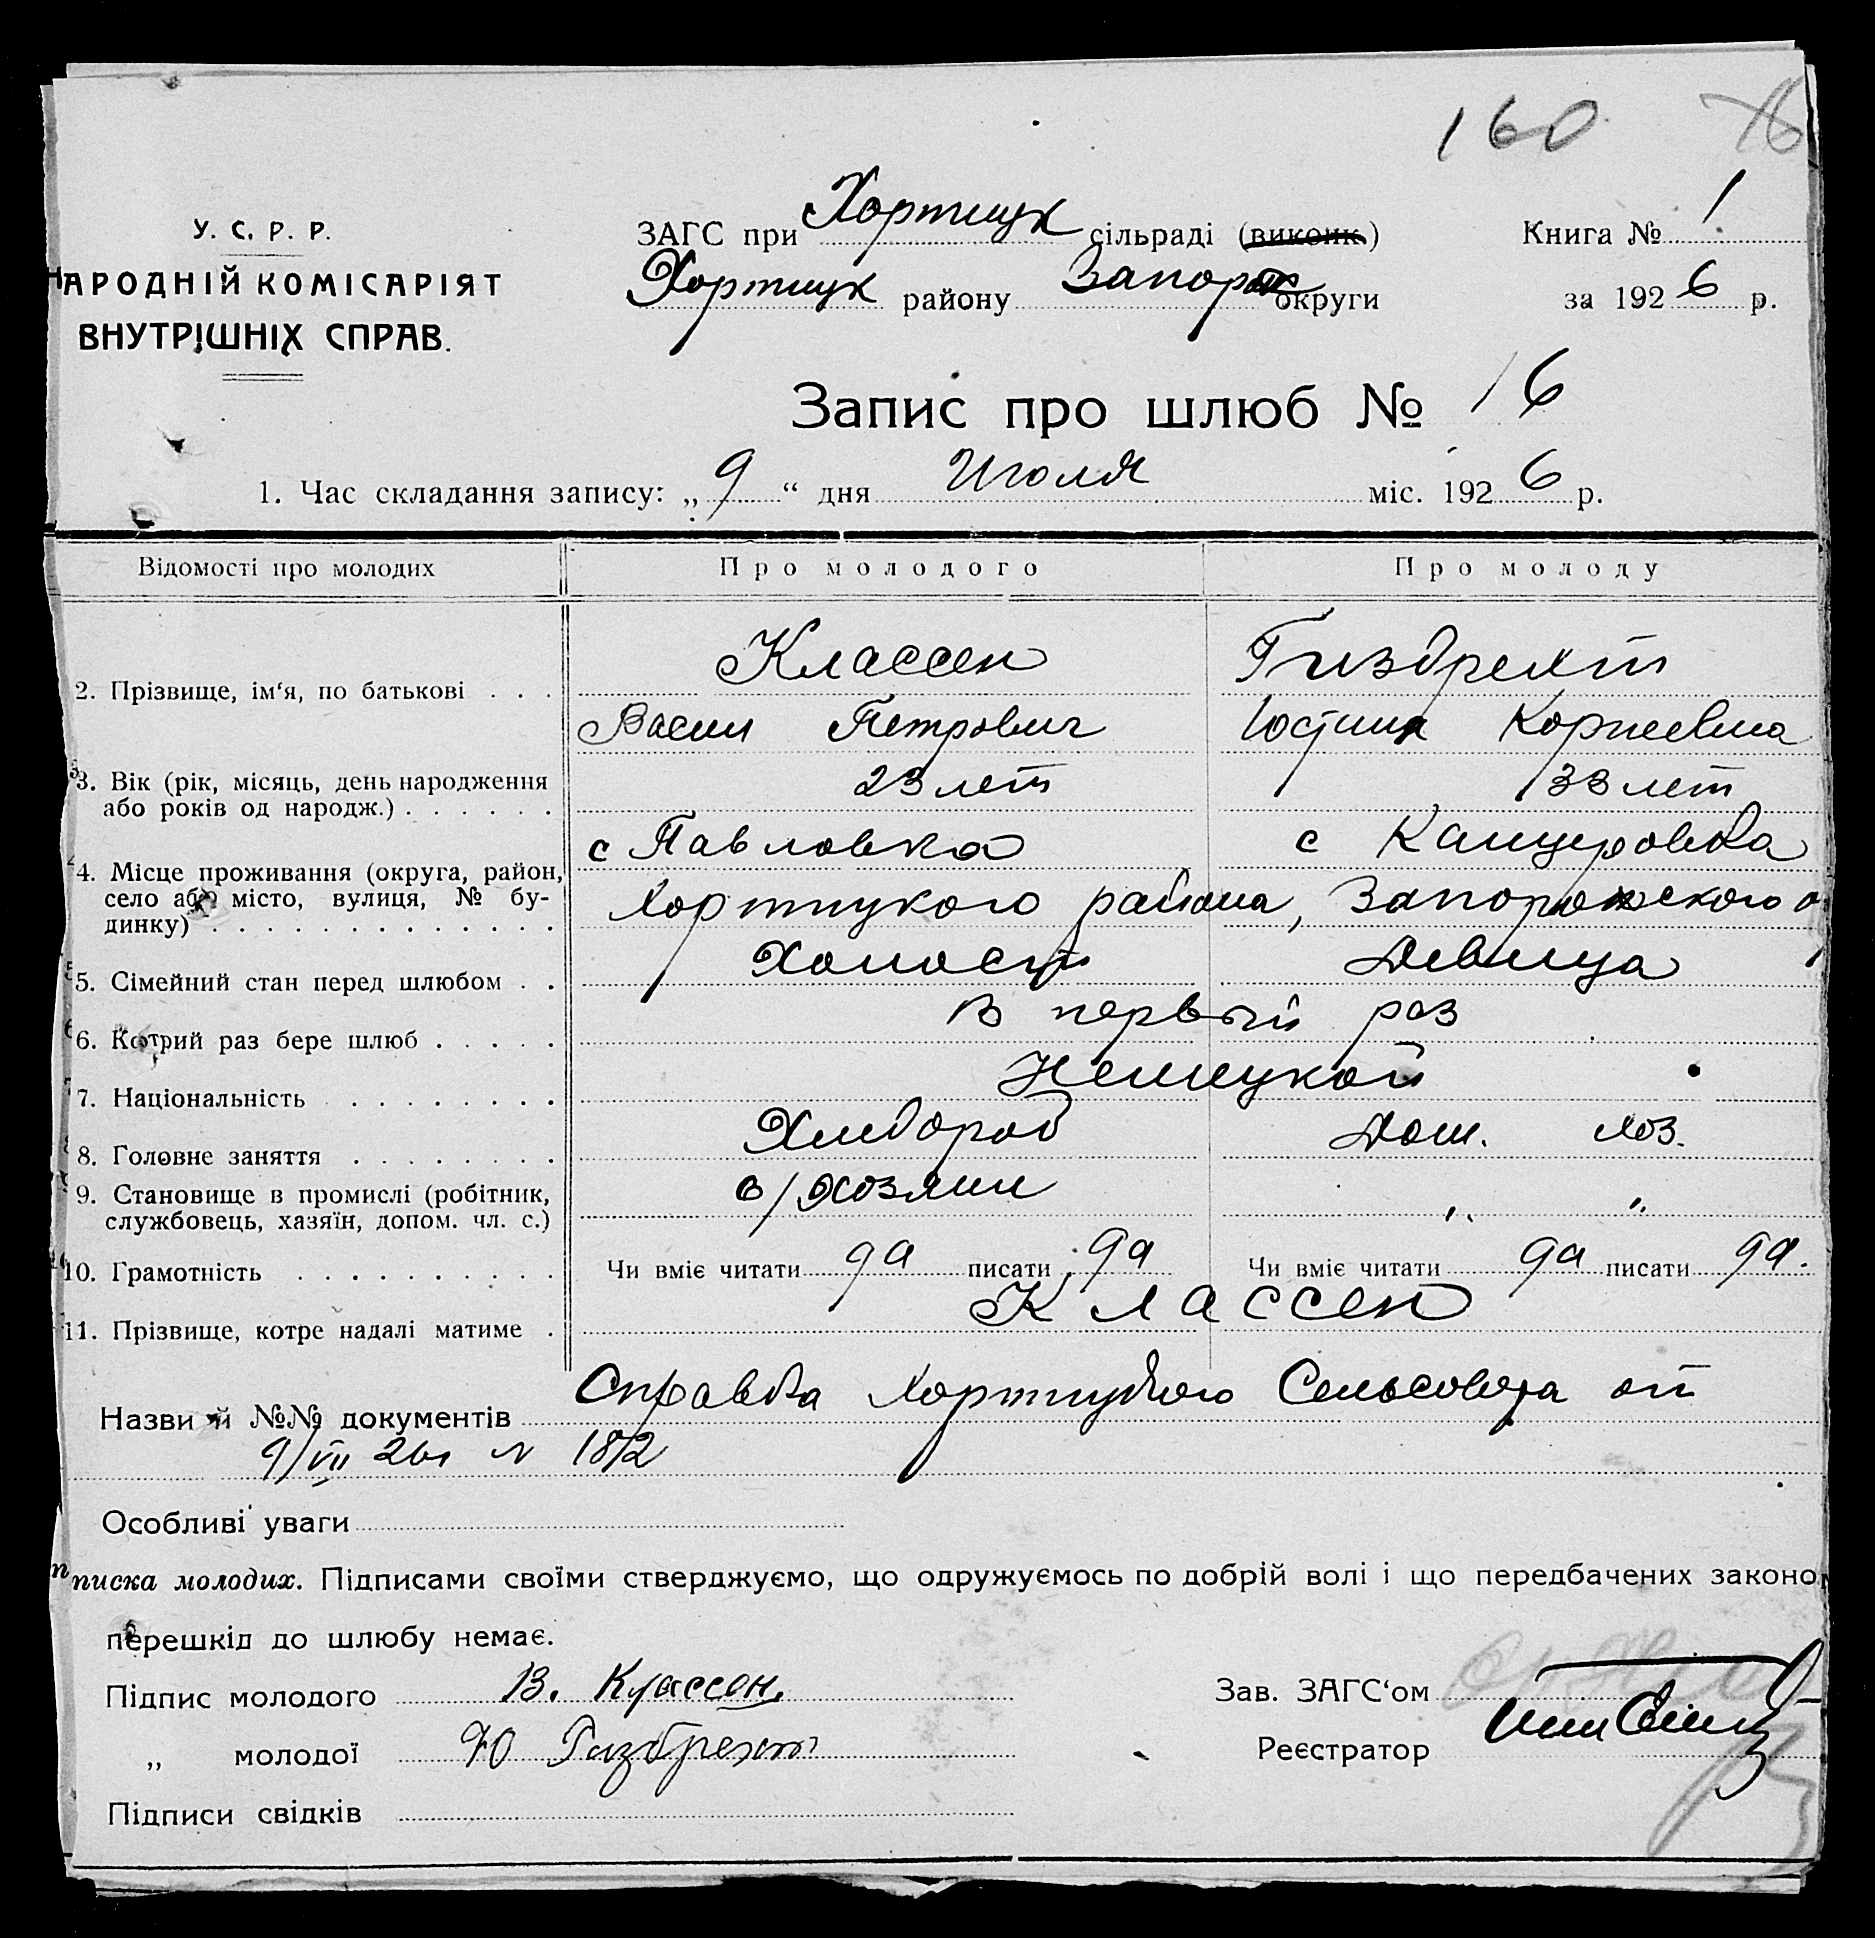 160
У. С. Р. Р.
НАРОДНІЙ КОМІСАРІЯТ
ВНУТРІШНІХ СПРАВ.
ЗАГС при Хортицк сільраді (викоик.)
Хортицк району Запорож округи
Книга № 1
за 1926 р.
Запис про шлюб № 16
1. Час складання запису: „ 9 “ дня Июля міс. 1926 р.
Відомості про молодих Про молодого Про молоду
2. Прізвище, ім‘я, по батькові . . . Классен Гизбрехт
Васил Петрович Юстина Корнеевна
3. Вік (рік, місяць, день народження
або років од народж.) . . . . . . 23 лет 33 лет
с Павловка с Канцеровка
4. Місце проживання (округа, район,
село або місто, вулиця, № бу-
динку) . . . . . . . . . . . . . Хортицкого района, Запорожского о
5. Сімейний стан перед шлюбом . . Холост Девица
6. Котрий раз бере шлюб . . . . . В первый раз
7. Національність . . . . . . . . Немецкой
8. Головне заняття . . . . . . . . Хлебороб Дом. хоз.
9. Становище в промислі (робітник,
службовець, хазяїн, допом. чл. с.) с/хозяин „ „
10. Грамотність . . . . . . . . . . Чи вміє читати да писати да Чи вміє читати да писати да.
11. Прізвище, котре надалі матиме . Классен
Назви й №№ документів Справка Хортицкого Сельсовета от
9/VII 26 г N 1872
Особливі уваги
писка молодих. Підписами своїми стверджуємо, що одружуємось по добрій волі і що передбачених законо
перешкід до шлюбу немає.
Підпис молодого В. Классен.
Зав. ЗАГС‘ом
„ молодої Ю Гизбрехт
Реєстратор
Підписи свідків